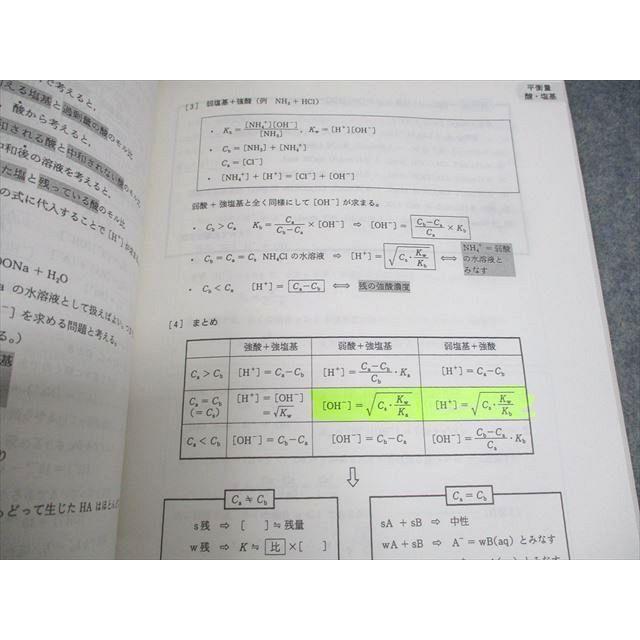 平衡量
酸・塩基
で考えると,
える塩基と過剰量の酸のモル比
酸から考えると,
和される酸と中和されない酸のモル比
中和後の溶液を考えると,
た塩と残っている酸のモル比
の式に代入することで [H⁺] が
OONa + H₂O
a の水溶液として扱えばよい
⁻] を求める問題と考える。
る。)
基
り
どって生じた HA はほとんど
[3] 弱塩基+強酸 (例 NH₃ + HCl)
・ K_b = [NH₄⁺][OH⁻] / [NH₃] , K_w = [H⁺][OH⁻]
・ C_b = [NH₃] + [NH₄⁺]
C_a = [Cl⁻]
・ [NH₄⁺] + [H⁺] = [Cl⁻] + [OH⁻]
弱酸+強塩基と全く同様にして [OH⁻] が求まる。
・ C_b > C_a K_b = C_a / (C_b − C_a) × [OH⁻] ⇨ [OH⁻] = (C_b − C_a) / C_a × K_b
・ C_b = C_a = C_s NH₄Cl の水溶液 ⇨ [H⁺] = √(C_s・K_w / K_b) ⟺ NH₄⁺ = 弱酸
の水溶液と
みなす
・ C_b < C_a [H⁺] = C_a − C_b ⟺ 残の強酸濃度
[4] まとめ
強酸+強塩基 弱酸+強塩基 弱塩基+強酸
C_a > C_b [H⁺] = C_a − C_b [H⁺] = (C_a − C_b) / C_b・K_a [H⁺] = C_a − C_b
C_a = C_b (= C_s) [H⁺] = [OH⁻] = √K_w [OH⁻] = √(C_s・K_w / K_a) [H⁺] = √(C_s・K_w / K_b)
C_a < C_b [OH⁻] = C_b − C_a [OH⁻] = C_b − C_a [OH⁻] = (C_b − C_a) / C_a・K_b
⇩
C_a ≠ C_b
s残 ⇨ [ ] ≒ 残量
w残 ⇨ K ≒ 比 × [ ]
C_a = C_b
sA + sB ⇨ 中性
wA + sB ⇨ A⁻ = wB(aq) とみなす